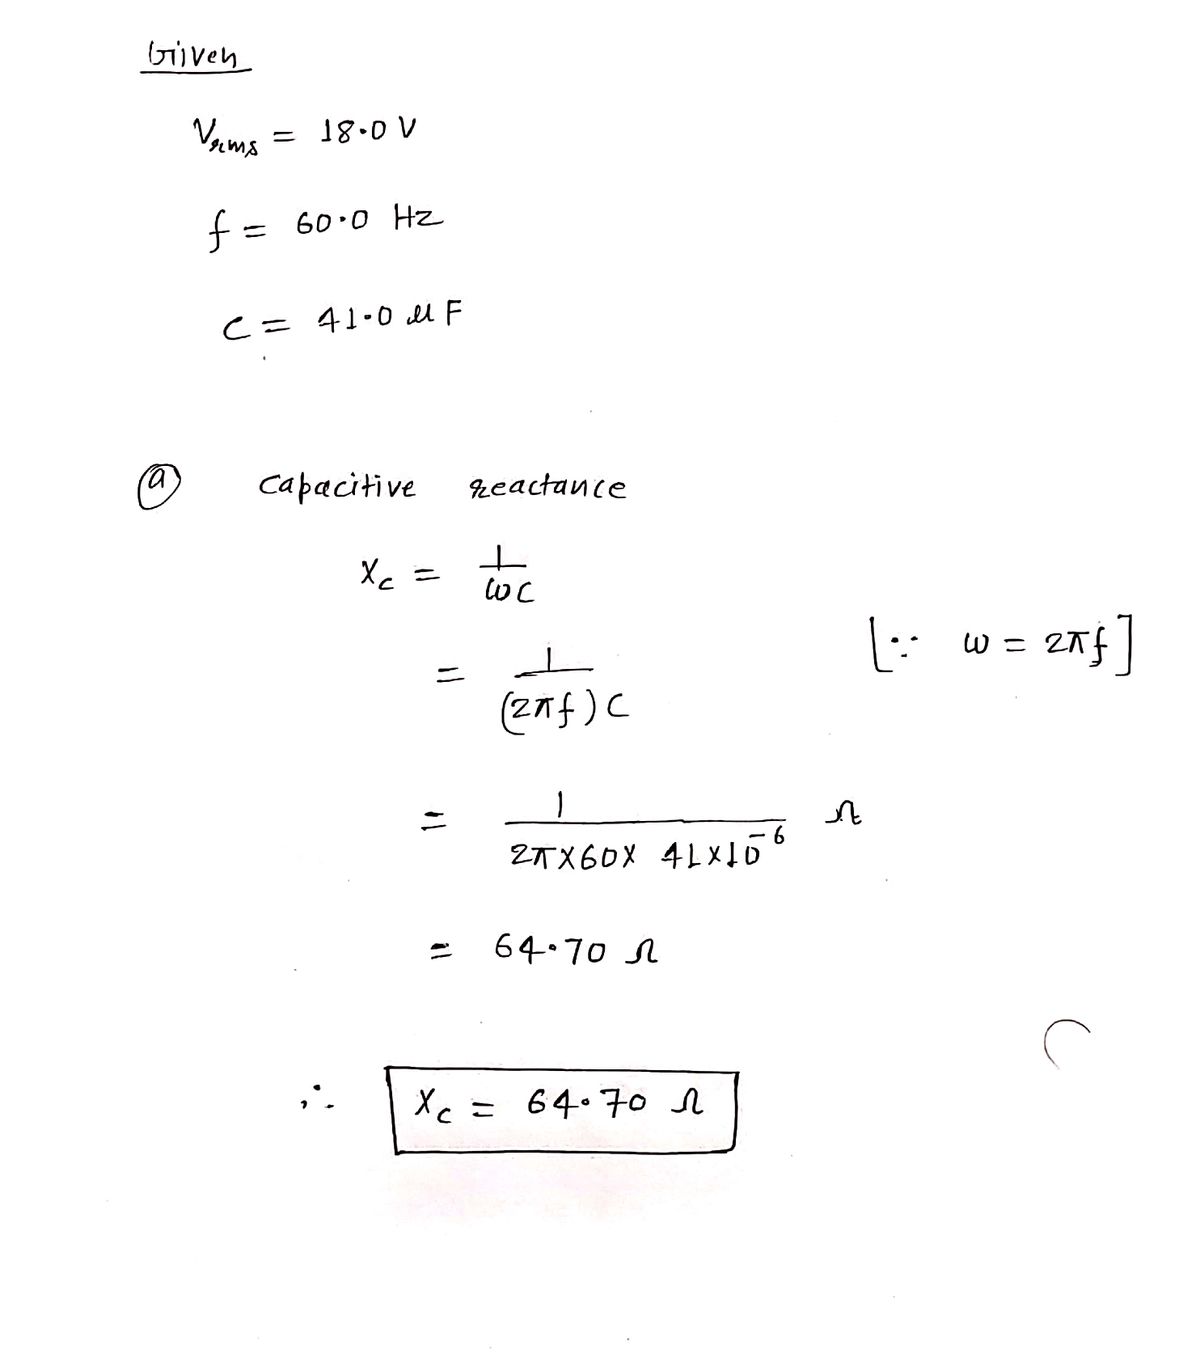 Given
Vrms = 18.0 V
f = 60.0 Hz
C = 41.0 μF
(a) Capacitive reactance
Xc = 1/ωC
= 1/(2πf)C [∵ ω = 2πf]
= 1/2π×60×41×10⁻⁶ Ω
= 64.70 Ω
∴ Xc = 64.70 Ω